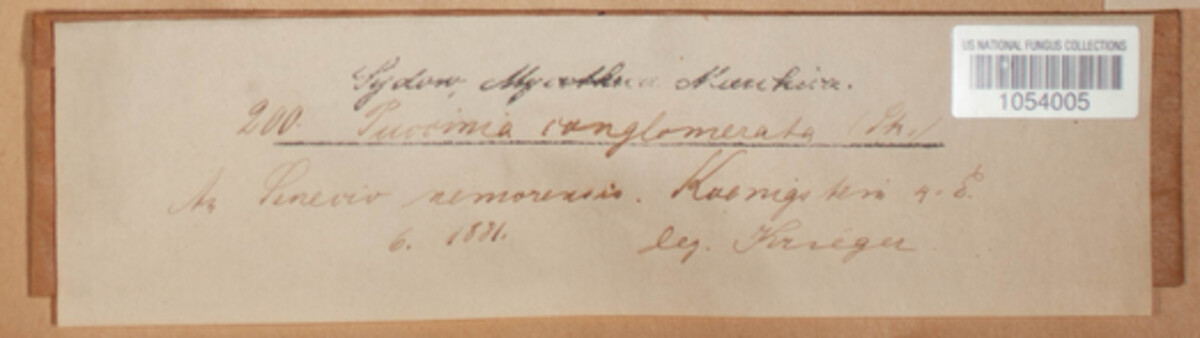 US NATIONAL FUNGUS COLLECTIONS
1054005
Sydow, Mycotheca Marchica.
200. Puccinia conglomerata (Str.)
An Senecio nemorensis. Koenigstein a. E.
6. 1881.
leg. Krieger